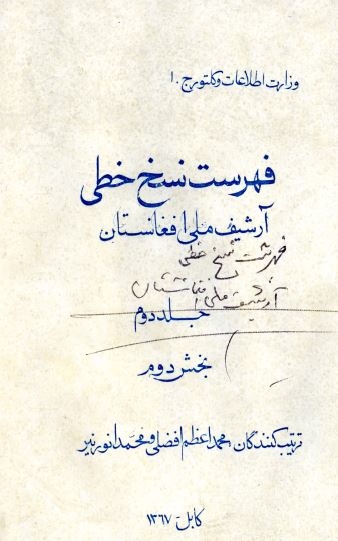 وزارت اطلاعات و کلتور ج . ا
فهرست نسخ خطی
آرشیف ملی افغانستان
فهرست نسخ خطی
آرشیف ملی افغانستان
جلد دوم
بخش دوم
ترتیب کنندگان: محمد اعظم افضلی و محمد انور نیر
کابل - ۱۳۶۷